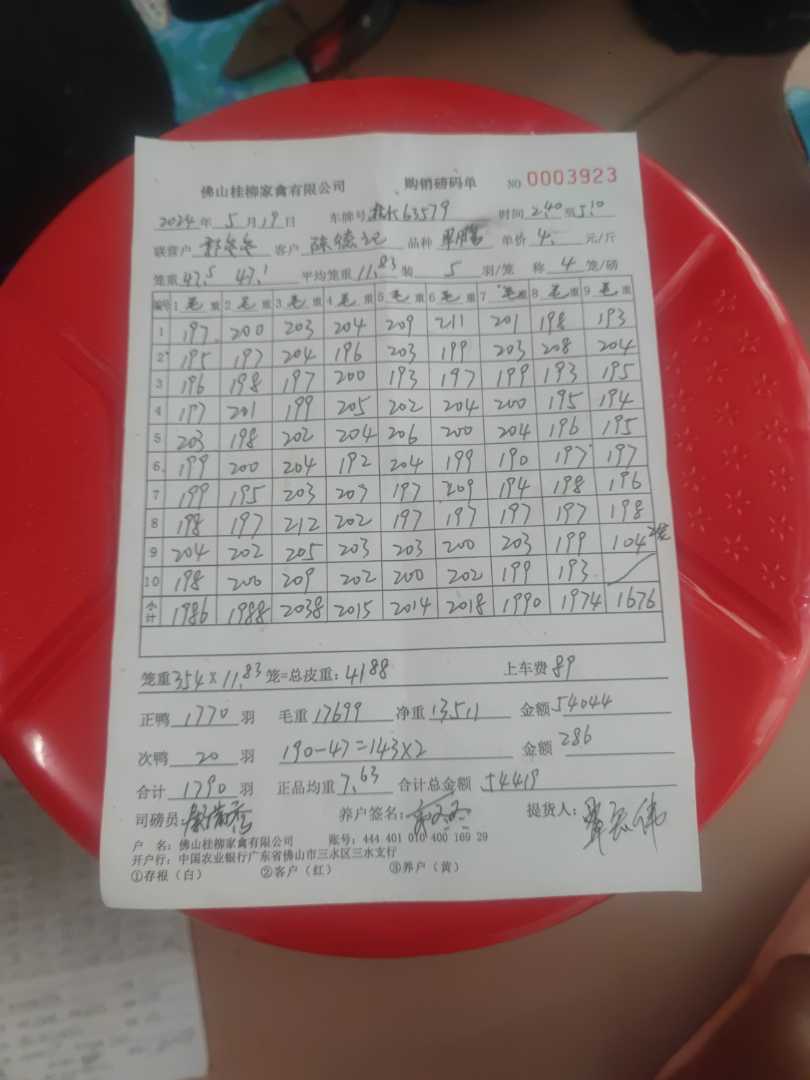 佛山桂柳家禽有限公司 购销磅码单 NO 0003923
2024年 5月19日 车牌号 63579 时间 2:40 至 5:10
联营户 客户 陈德记 品种 单价 4. 元/斤
笼重 47.5 47.1 平均笼重 11.83 装 5 羽/笼 称 4 笼/磅
编号 1 毛 重 2 毛 重 3 毛 重 4 毛 重 5 毛 重 6 毛 重 7 毛 重 8 毛 重 9 毛 重
1 197 200 203 204 209 211 201 198 193
2 195 197 204 196 203 199 203 208 204
3 196 198 197 200 193 197 199 193 195
4 197 201 199 205 202 204 200 195 194
5 203 198 202 204 206 200 204 196 195
6 199 200 204 192 204 199 190 197 197
7 199 195 203 207 197 209 194 198 196
8 198 197 212 202 197 197 197 197 198
9 204 202 205 203 203 200 203 199 104 2笼
10 198 200 209 202 200 202 199 193
小计 1986 1988 2038 2015 2014 2018 1990 1974 1676
笼重 354 × 11.83 笼=总皮重: 4188 上车费 89
正鸭 1770 羽 毛重 17699 净重 13511 金额 54044
次鸭 20 羽 190-47=143×2 金额 286
合计 1790 羽 正品均重 7.63 合计总金额 54419
司磅员: 养户签名: 提货人:
户 名: 佛山桂柳家禽有限公司 账号: 444 401 010 400 169 29
开户行: 中国农业银行广东省佛山市三水区三水支行
①存根(白) ②客户(红) ③养户(黄)